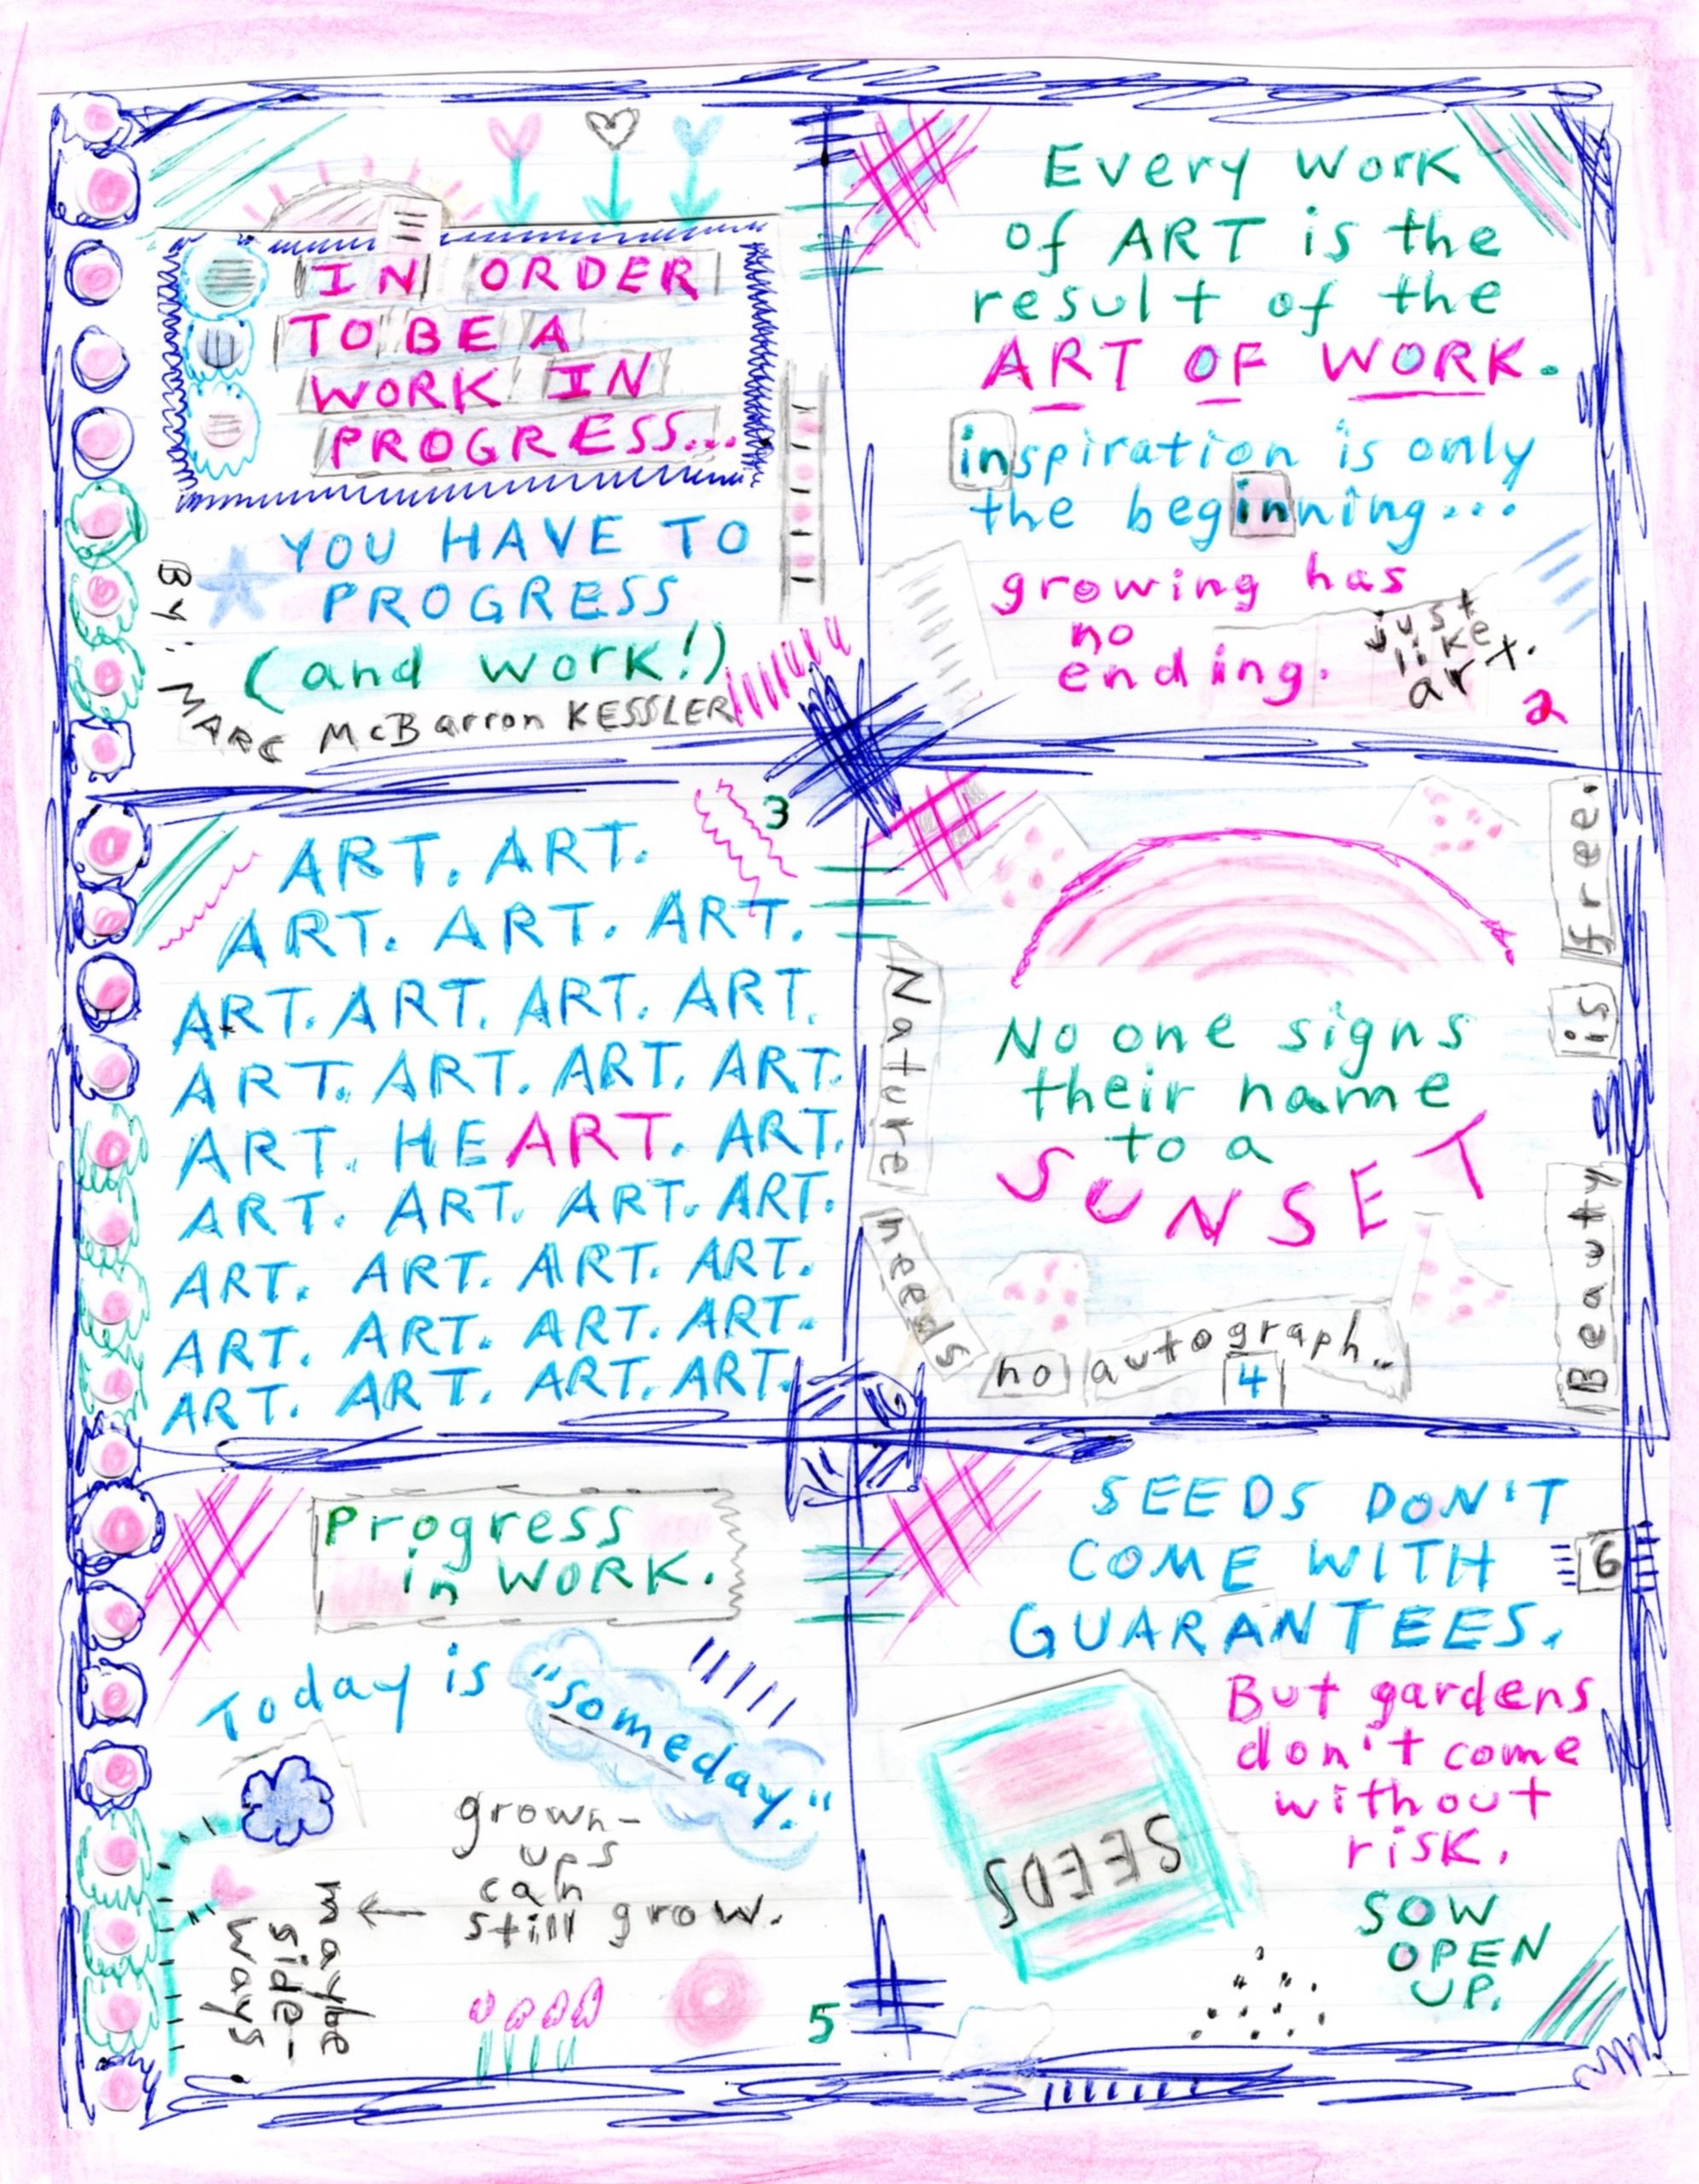 IN ORDER
TO BE A
WORK IN
PROGRESS...
YOU HAVE TO
PROGRESS
(and work!)
By: MARC McBarron KESSLER
Every work
of ART is the
result of the
ART OF WORK.
inspiration is only
the beginning...
growing has
no
ending.
just
like
art.
2
3
ART. ART.
ART. ART. ART.
ART. ART. ART. ART.
ART. ART. ART. ART.
ART. HEART. ART.
ART. ART. ART. ART.
ART. ART. ART. ART.
ART. ART. ART. ART.
ART. ART. ART. ART.
No one signs
their name
to a
SUNSET
Nature needs no autograph..
Beauty is free.
4
Progress
in WORK.
Today is "someday."
grown-
ups
can
still grow.
maybe
side-
ways
5
SEEDS DON'T
COME WITH
GUARANTEES.
6
But gardens
don't come
without
risk.
SEEDS
SOW
OPEN
UP.